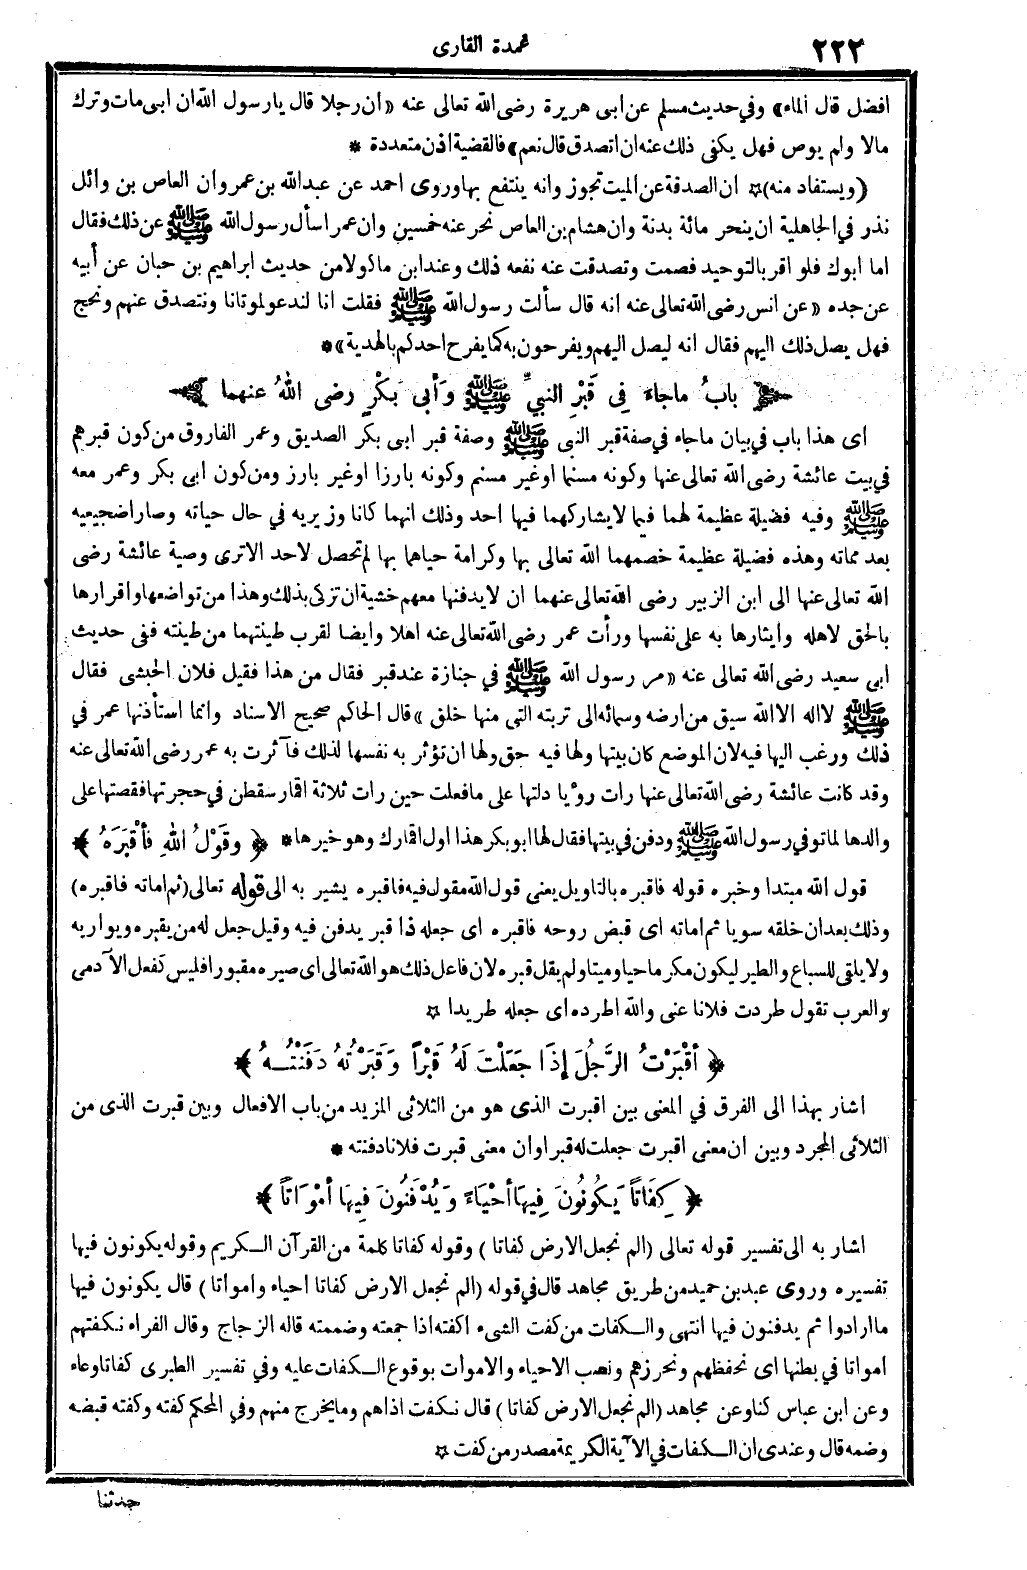 ٢٢٢
عمدة القارى
افضل قال الماء» وفي حديث مسلم عن ابى هريرة رضى الله تعالى عنه «ان رجلا قال يارسول الله ان ابى مات وترك
مالا ولم يوص فهل يكفى ذلك عنه ان اتصدق قال نعم» فالقضية اذن متعددة *
(ويستفاد منه) ☆ ان الصدقة عن الميت تجوز وانه ينتفع بها وروى احمد عن عبدالله بن عمر وان العاص بن وائل
نذر في الجاهلية ان ينحر مائة بدنة وان هشام بن العاص نحر عنه خمسين وان عمرا سأل رسول الله ﷺ عن ذلك فقال
اما ابوك فلو اقر بالتوحيد فصمت وتصدقت عنه نفعه ذلك وعند ابن ماكولا من حديث ابراهيم بن حبان عن أبيه
عن جده «عن انس رضى الله تعالى عنه انه قال سألت رسول الله ﷺ فقلت انا لندعو لموتانا ونتصدق عنهم ونحج
فهل يصل ذلك اليهم فقال انه ليصل اليهم ويفرحون به كما يفرح احدكم بالهدية» *
باب ما جاء فِي قَبْرِ النبيِّ ﷺ وَأبى بَكْرٍ رضى اللهُ عنهما
اى هذا باب في بيان ماجاء في صفة قبر النبى ﷺ وصفة قبر ابى بكر الصديق وعمر الفاروق من كون قبرهم
في بيت عائشة رضى الله تعالى عنها وكونه مسنما او غير مسنم وكونه بارزا اوغير بارز ومن كون ابى بكر وعمر معه
ﷺ وفيه فضيلة عظيمة لهما فيما لا يشاركهما فيها احد وذلك انهما كانا وزيريه في حال حياته وصارا ضجيعيه
بعد مماته وهذه فضيلة عظيمة خصهما الله تعالى بها وكرامة حياهما بها لم تحصل لاحد الاترى وصية عائشة رضى
الله تعالى عنها الى ابن الزبير رضى الله تعالى عنهما ان لا يدفنها معهم خشية ان تزكى بذلك وهذا من تواضعها واقرارها
بالحق لاهله وايثارها به على نفسها ورأت عمر رضى الله تعالى عنه اهلا وايضا لقرب طينتهما من طينته ففى حديث
ابى سعيد رضى الله تعالى عنه «مر رسول الله ﷺ في جنازة عند قبر فقال من هذا فقيل فلان الحبشى فقال
ﷺ لااله الا الله سيق من ارضه وسمائه الى تربته التى منها خلق» قال الحاكم صحيح الاسناد وانما استأذنها عمر في
ذلك ورغب اليها فيه لان الموضع كان بيتها ولها فيه حق ولها ان تؤثر به نفسها لذلك فآثرت به عمر رضى الله تعالى عنه
وقد كانت عائشة رضى الله تعالى عنها رات رؤيا دلتها على مافعلت حين رات ثلاثة اقمار سقطن في حجرتها فقصتها على
والدها لما توفي رسول الله ﷺ ودفن في بيتها فقال لها ابوبكر هذا اول اقمارك وهو خيرها * ﴿ وقَوْلُ اللهِ فأقْبَرَهُ ﴾
قول الله مبتدا وخبره قوله فاقبره بالتاويل يعنى قول الله مقول فيه فاقبره يشير به الى قوله تعالى (ثم اماته فاقبره)
وذلك بعد ان خلقه سويا ثم اماته اى قبض روحه فاقبره اى جعله ذا قبر يدفن فيه وقيل جعل له من يقبره ويواريه
ولا يلقى للسباع والطير ليكون مكرما حيا وميتا ولم يقل قبره لان فاعل ذلك هو الله تعالى اى صيره مقبورا فليس كفعل الآدمى
والعرب تقول طردت فلانا عنى والله اطرده اى جعله طريدا ☆
﴿ أقْبَرْتُ الرَّجُلَ إذَا جَعَلْتَ لَهُ قَبْرًا وَقَبَرْتُهُ دَفَنْتُهُ ﴾
اشار بهذا الى الفرق في المعنى بين اقبرت الذى هو من الثلاثى المزيد من باب الافعال وبين قبرت الذى من
الثلاثى المجرد وبين ان معنى اقبرت جعلت له قبرا وان معنى قبرت فلانا دفنته *
﴿ كِفَاتًا يَكُونُونَ فِيهَا أحْيَاءً وَيُدْفَنُونَ فِيهَا أمْوَاتًا ﴾
اشار به الى تفسير قوله تعالى (الم نجعل الارض كفاتا) وقوله كفاتا كلمة من القرآن الكريم وقوله يكونون فيها
تفسيره وروى عبد بن حميد من طريق مجاهد قال في قوله (الم نجعل الارض كفاتا احياء وامواتا) قال يكونون فيها
ما ارادوا ثم يدفنون فيها انتهى والكفات من كفت الشىء اكفته اذا جمعته وضممته قاله الزجاج وقال الفراء نكفتهم
امواتا في بطنها اى نحفظهم ونحرزهم ونصب الاحياء والاموات بوقوع الكفات عليه وفي تفسير الطبرى كفاتا وعاء
وعن ابن عباس كنا وعن مجاهد (الم نجعل الارض كفاتا) قال نكفت اذاهم وما يخرج منهم وفي المحكم كفته وكفته قبضه
وضمه قال وعندى ان الكفات في الآية الكريمة مصدر من كفت ☆
حدثنا